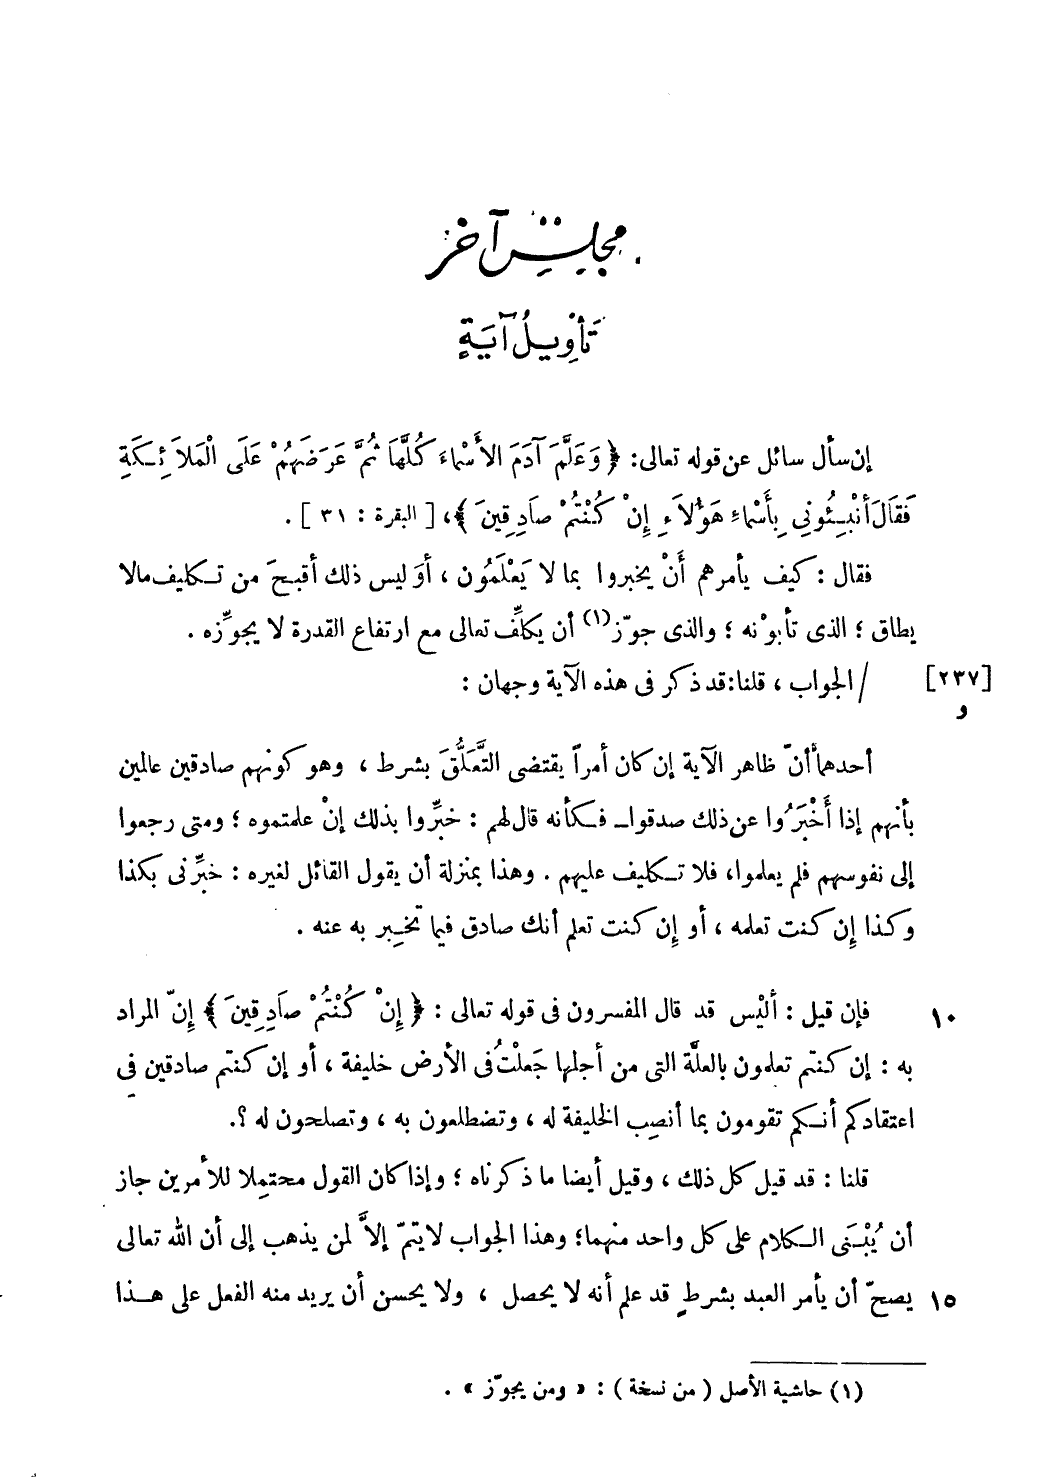 مجلس آخر
تَأْوِيلُ آيَةٍ
إن سأل سائل عن قوله تعالى: ﴿ وَعَلَّمَ آدَمَ الأَسْمَاءَ كُلَّهَا ثُمَّ عَرَضَهُمْ عَلَى الْمَلاَئِكَةِ
فَقَالَ أَنْبِئُونِي بِأَسْمَاءِ هَؤُلاَءِ إِنْ كُنْتُمْ صَادِقِينَ ﴾، [ البقرة : ٣١ ] .
فقال : كيف يأمرهم أَنْ يخبروا بما لا يَعْلَمُون ، أوَ ليس ذلك أقبحَ من تكليف مالا
يطاق ؛ الذى تأبوْنه ؛ والذى جوّز(١) أن يكلِّف تعالى مع ارتفاع القدرة لا يجوِّزه .
[٢٣٧ و] / الجواب ، قلنا: قد ذكر فى هذه الآية وجهان :
أحدهما أنّ ظاهر الآية إن كان أمراً يقتضى التَّعَلُّقَ بشرط ، وهو كونهم صادقين عالمين
بأنهم إذا أَخْبَرُوا عن ذلك صدقوا ـ فكأنه قال لهم : خبِّروا بذلك إنْ علمتموه ؛ ومتى رجعوا
إلى نفوسهم فلم يعلموا، فلا تكليف عليهم . وهذا بمنزلة أن يقول القائل لغيره : خبِّرنى بكذا
وكذا إن كنت تعلمه ، أو إن كنت تعلم أنك صادق فيما تخبر به عنه .
١٠ فإن قيل : أليْس قد قال المفسرون فى قوله تعالى : ﴿ إِنْ كُنْتُمْ صَادِقِينَ ﴾ إنّ المراد
به : إن كنتم تعلمون بالعلَّة التى من أجلها جَعلْتُ فى الأرض خليفة ، أو إن كنتم صادقين فى
اعتقادكم أنكم تقومون بما أنصِب الخليفة له ، وتضطلعون به ، وتصلحون له ؟.
قلنا : قد قيل كل ذلك ، وقيل أيضا ما ذكرناه ؛ وإذا كان القول محتمِلا للأمرين جاز
أن يُبْنَى الكلام على كل واحد منهما؛ وهذا الجواب لا يتمّ إلاَّ لمن يذهب إلى أن الله تعالى
١٥ يصحّ أن يأمر العبد بشرطٍ قد علم أنه لا يحصل ، ولا يحسن أن يريد منه الفعل على هذا
(١) حاشية الأصل ( من نسخة ) : « ومن يجوّز » .